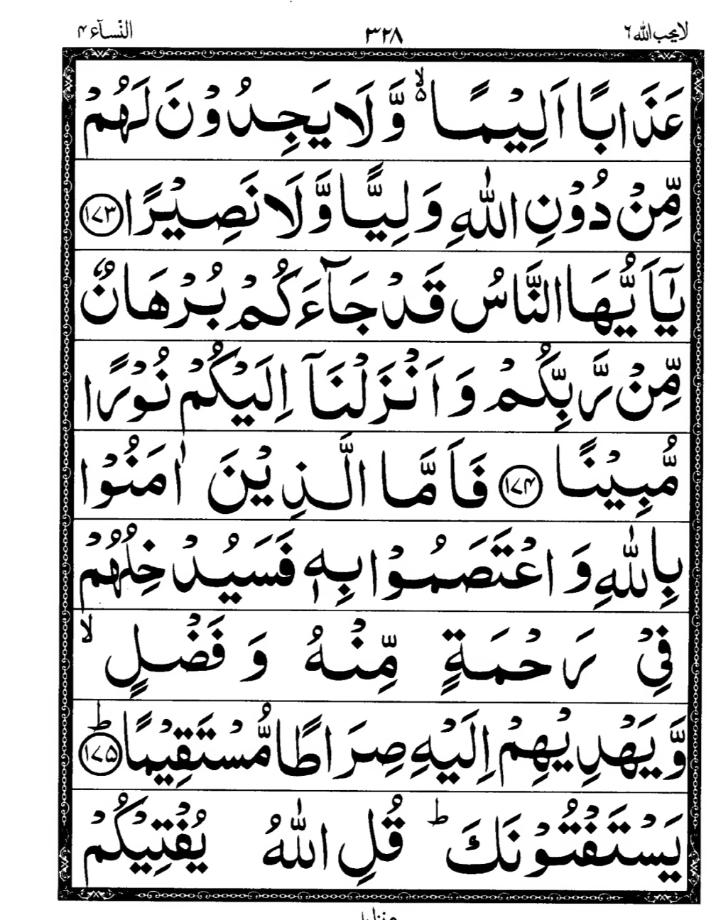 لا يحب الله ٦ ٣٢٨ النسآء ٤
عَذَابًا اَلِيْمًا ۙ۬ وَّ لَا يَجِدُوْنَ لَهُمْ
مِّنْ دُوْنِ اللّٰهِ وَلِيًّا وَّلَا نَصِيْرًا ﴿١٧٣﴾
يٰۤاَيُّهَا النَّاسُ قَدْ جَآءَكُمْ بُرْهَانٌ
مِّنْ رَّبِّكُمْ وَ اَنْزَلْنَاۤ اِلَيْكُمْ نُوْرًا
مُّبِيْنًا ﴿١٧٤﴾ فَاَمَّا الَّذِيْنَ اٰمَنُوْا
بِاللّٰهِ وَ اعْتَصَمُوْا بِهٖ فَسَيُدْخِلُهُمْ
فِيْ رَحْمَةٍ مِّنْهُ وَ فَضْلٍ ۙ
وَّيَهْدِيْهِمْ اِلَيْهِ صِرَاطًا مُّسْتَقِيْمًا ؕ﴿١٧٥﴾
يَسْتَفْتُوْنَكَ ؕ قُلِ اللّٰهُ يُفْتِيْكُمْ